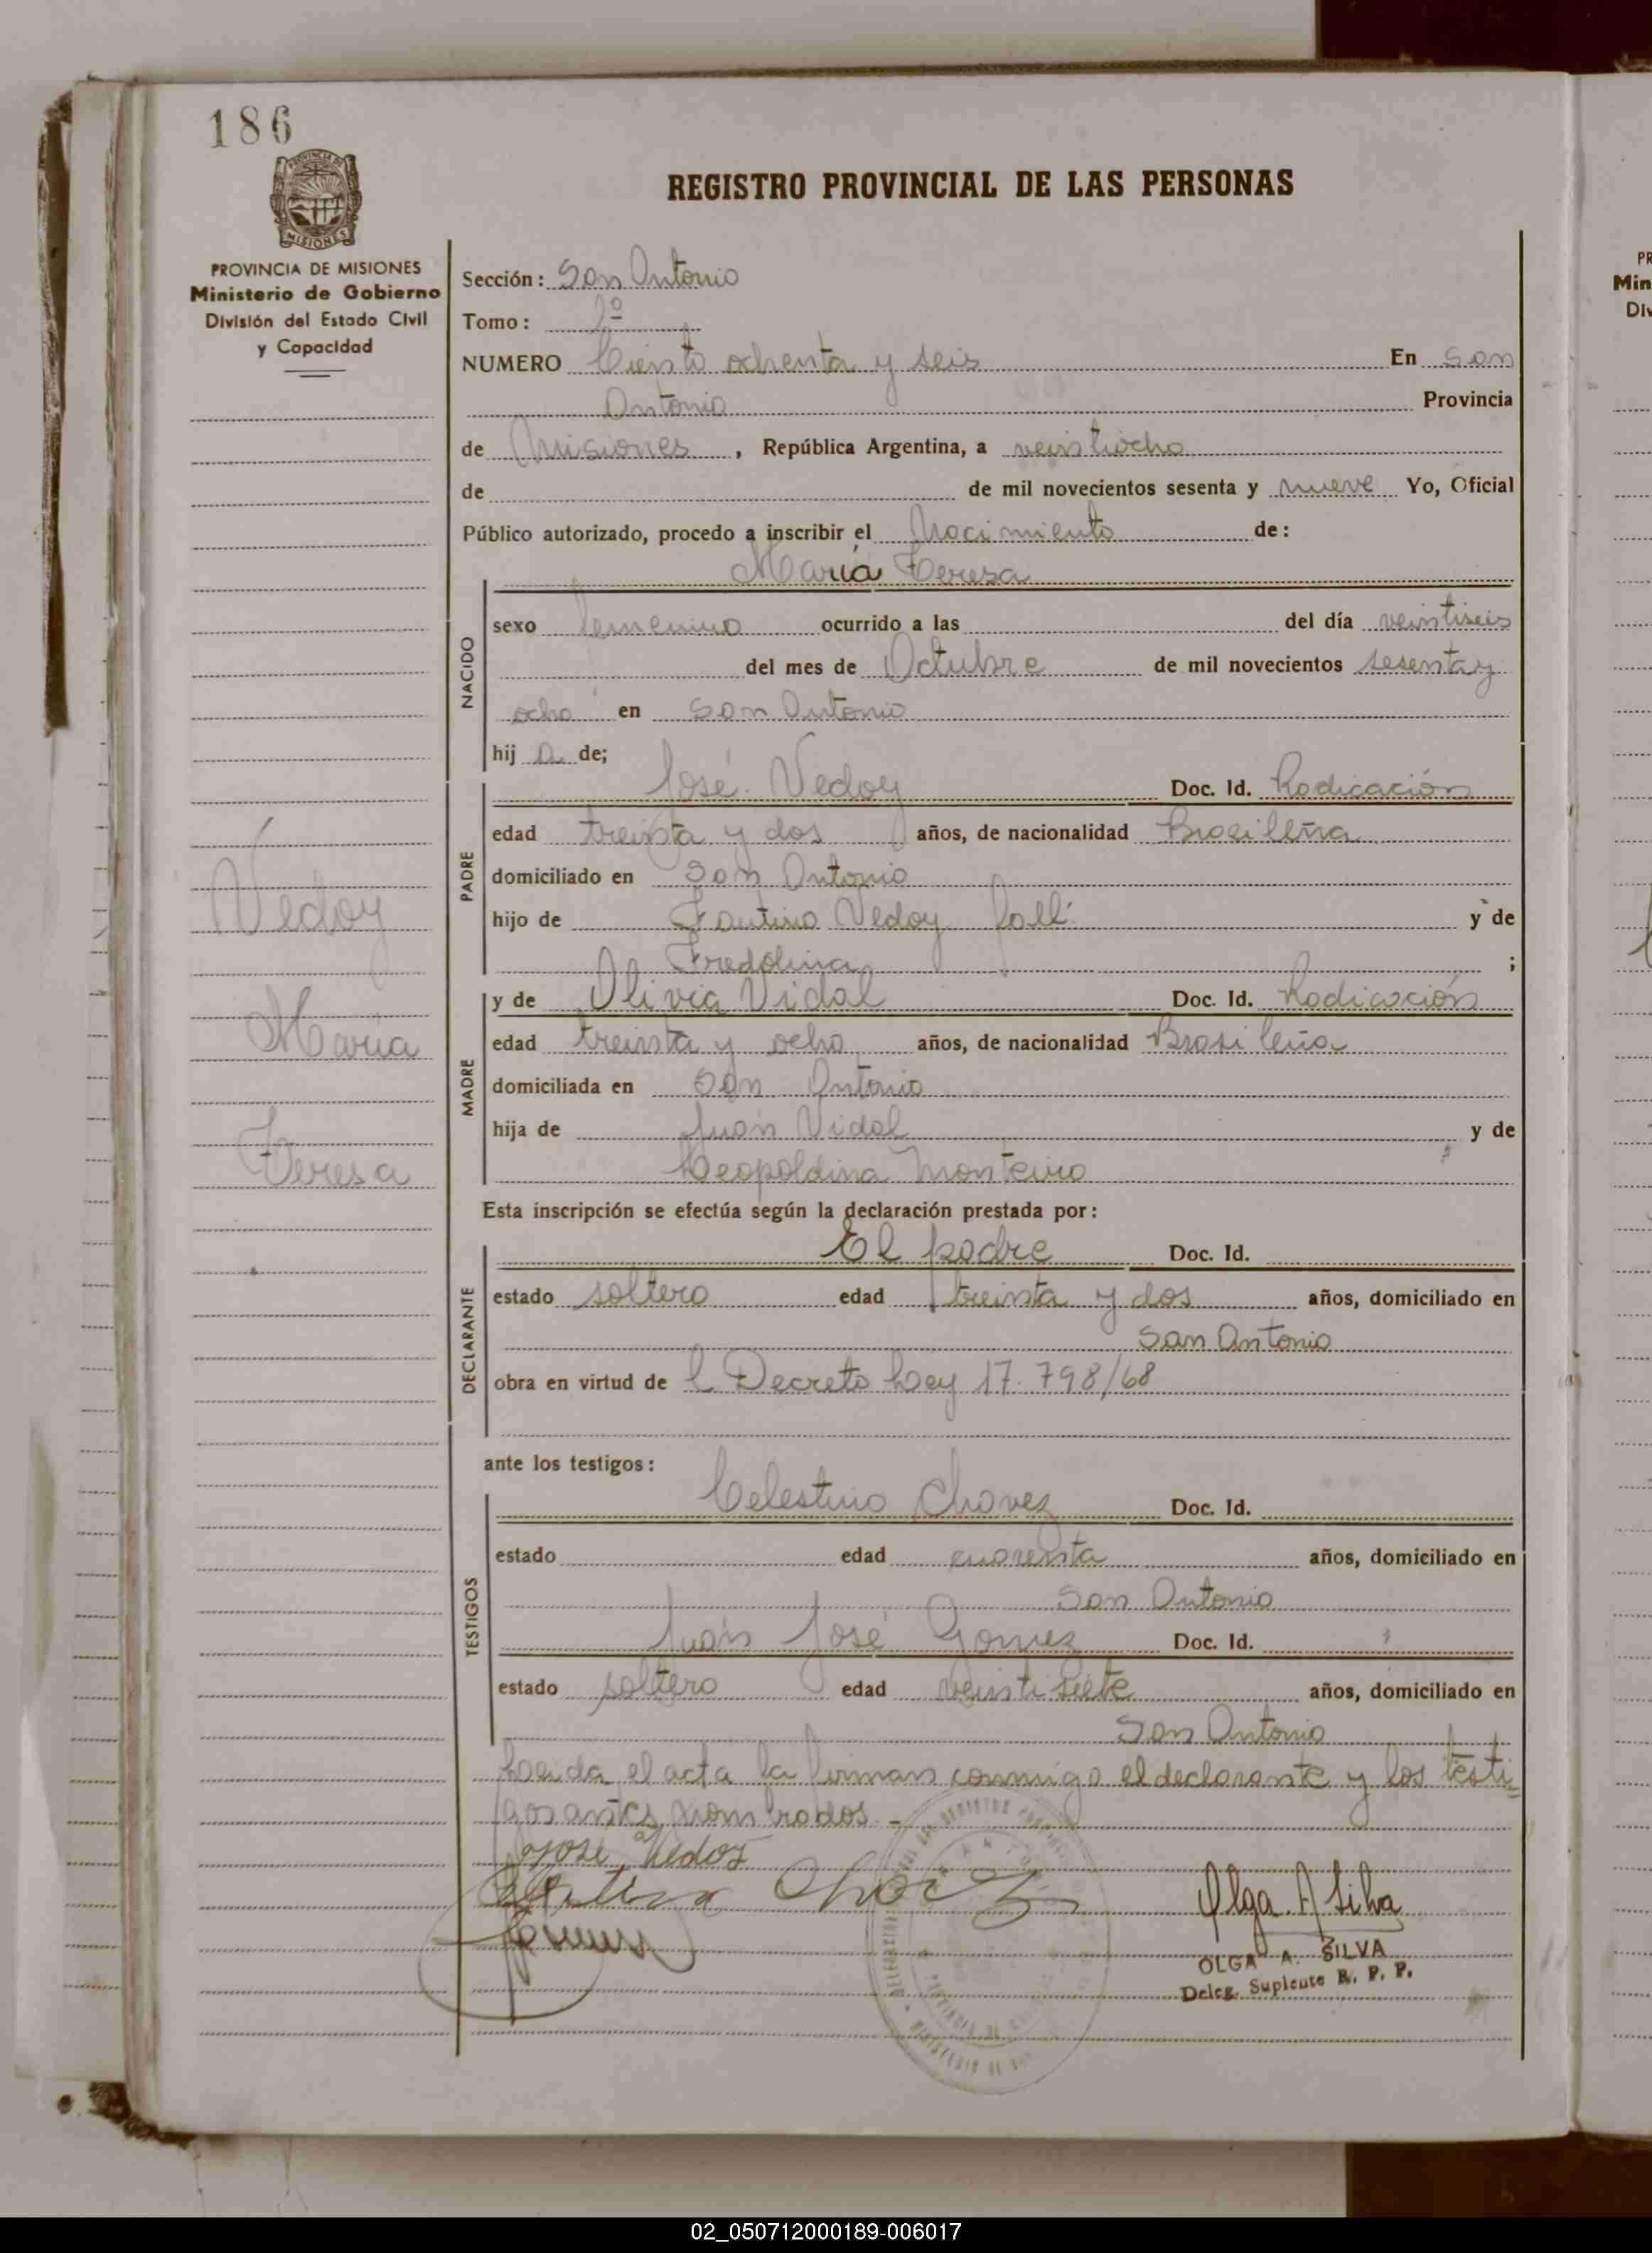 186
PROVINCIA DE MISIONES
Ministerio de Gobierno
División del Estado Civil
y Capacidad
REGISTRO PROVINCIAL DE LAS PERSONAS
Sección: San Antonio
Tomo: 1º
NUMERO Ciento ochenta y seis En San
Antonio Provincia
de Misiones, República Argentina, a veintiocho
de de mil novecientos sesenta y nueve Yo, Oficial
Público autorizado, procedo a inscribir el Nacimiento de:
María Teresa
NACIDO
sexo femenino ocurrido a las del día veintiseis
del mes de Octubre de mil novecientos sesenta y
ocho en San Antonio
hij a de;
PADRE
José Vedoy Doc. Id. Radicación
edad treinta y dos años, de nacionalidad Brasileña
domiciliado en San Antonio
hijo de Fautino Vedoy fall. y de
Fredolina ;
MADRE
y de Olivia Vidal Doc. Id. Radicación
edad treinta y ocho años, de nacionalidad Brasileña
domiciliada en San Antonio
hija de Juan Vidal y de
Leopoldina Monteiro
Vedoy
María
Teresa
Esta inscripción se efectúa según la declaración prestada por:
DECLARANTE
El padre Doc. Id.
estado soltero edad treinta y dos años, domiciliado en
San Antonio
obra en virtud de l Decreto Ley 17.798/68
ante los testigos:
TESTIGOS
Celestino Chavez Doc. Id.
estado edad cuarenta años, domiciliado en
San Antonio
Juan José Gomez Doc. Id.
estado soltero edad veintisiete años, domiciliado en
San Antonio
Leida el acta la firman conmigo el declarante y los testi-
gos antes nombrados.-
Jose Vedoy
Olga A Silva
OLGA A. SILVA
Deleg. Suplente R. P. P.
02_050712000189-006017